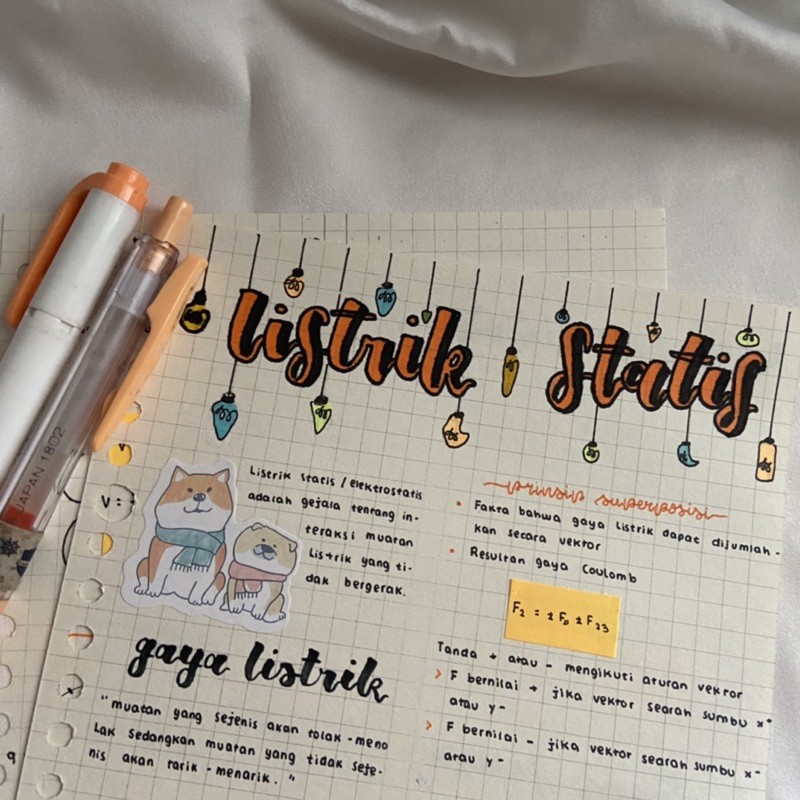 listrik statis
Listrik statis / elektrostatis
adalah gejala tentang in-
teraksi muatan
listrik yang ti-
dak bergerak.
gaya listrik
"muatan yang sejenis akan tolak-meno
lak sedangkan muatan yang tidak seje-
nis akan tarik-menarik."
prinsip superposisi
• Fakta bahwa gaya listrik dapat dijumlah-
kan secara vektor
• Resultan gaya Coulomb
F₂ = ± F₂₁ ± F₂₃
Tanda + atau - mengikuti aturan vektor
> F bernilai + jika vektor searah sumbu x⁺
atau y-
> F bernilai - jika vektor searah sumbu x-
atau y-
JAPAN 1802
V =
V
9